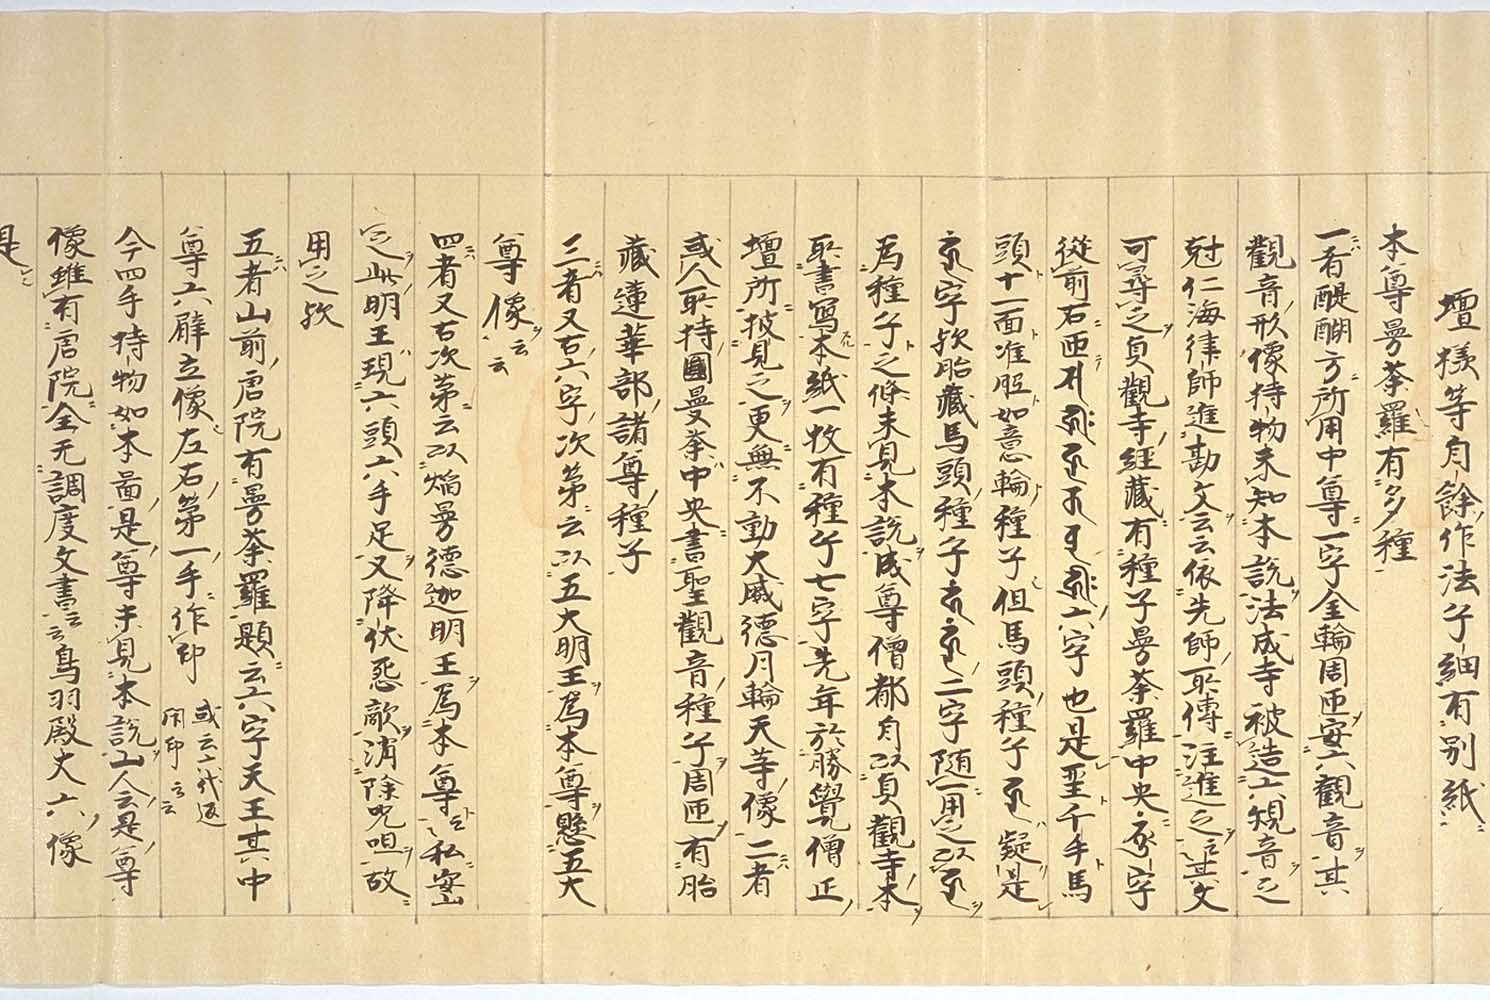 壇様等自餘作法子細有別紙
本尊曼荼羅有多種
一者醍醐方所用中尊一字金輪周匝安六觀音其
觀音形像持物未知本説法成寺被造六觀音之
尅仁海律師進勘文云云依先師所傳注進之其文
可尋之貞觀寺經藏有種子曼荼羅中央字
從前右匝六字也是聖千手馬
頭十一面准胝如意輪種子但馬頭種子疑是
字欤胎藏馬頭種子二字随一用之以
爲種子之條未見本説成尊僧都自以貞觀寺本
所書寫本紙一枚有種子七字先年於勝覺僧正
壇所披見之更無不動大威德月輪天等像二者
或人所持圖曼荼中央書聖觀音種子周匝有胎
藏蓮華部諸尊種子
三者又右六字次第云以五大明王爲本尊懸五大
尊像云云
四者又右次第云以焔曼德迦明王爲本尊云私案
之此明王現六頭六手足又降伏怨敵消除呪咀故
用之欤
五者山前唐院有曼荼羅題云六字天王其中
尊六臂立像左右第一手作印 或云 印云云
今四手持物如本啚是尊未見本説山人云是尊
像雖有唐院全无調度文書云云鳥羽殿丈六像
是